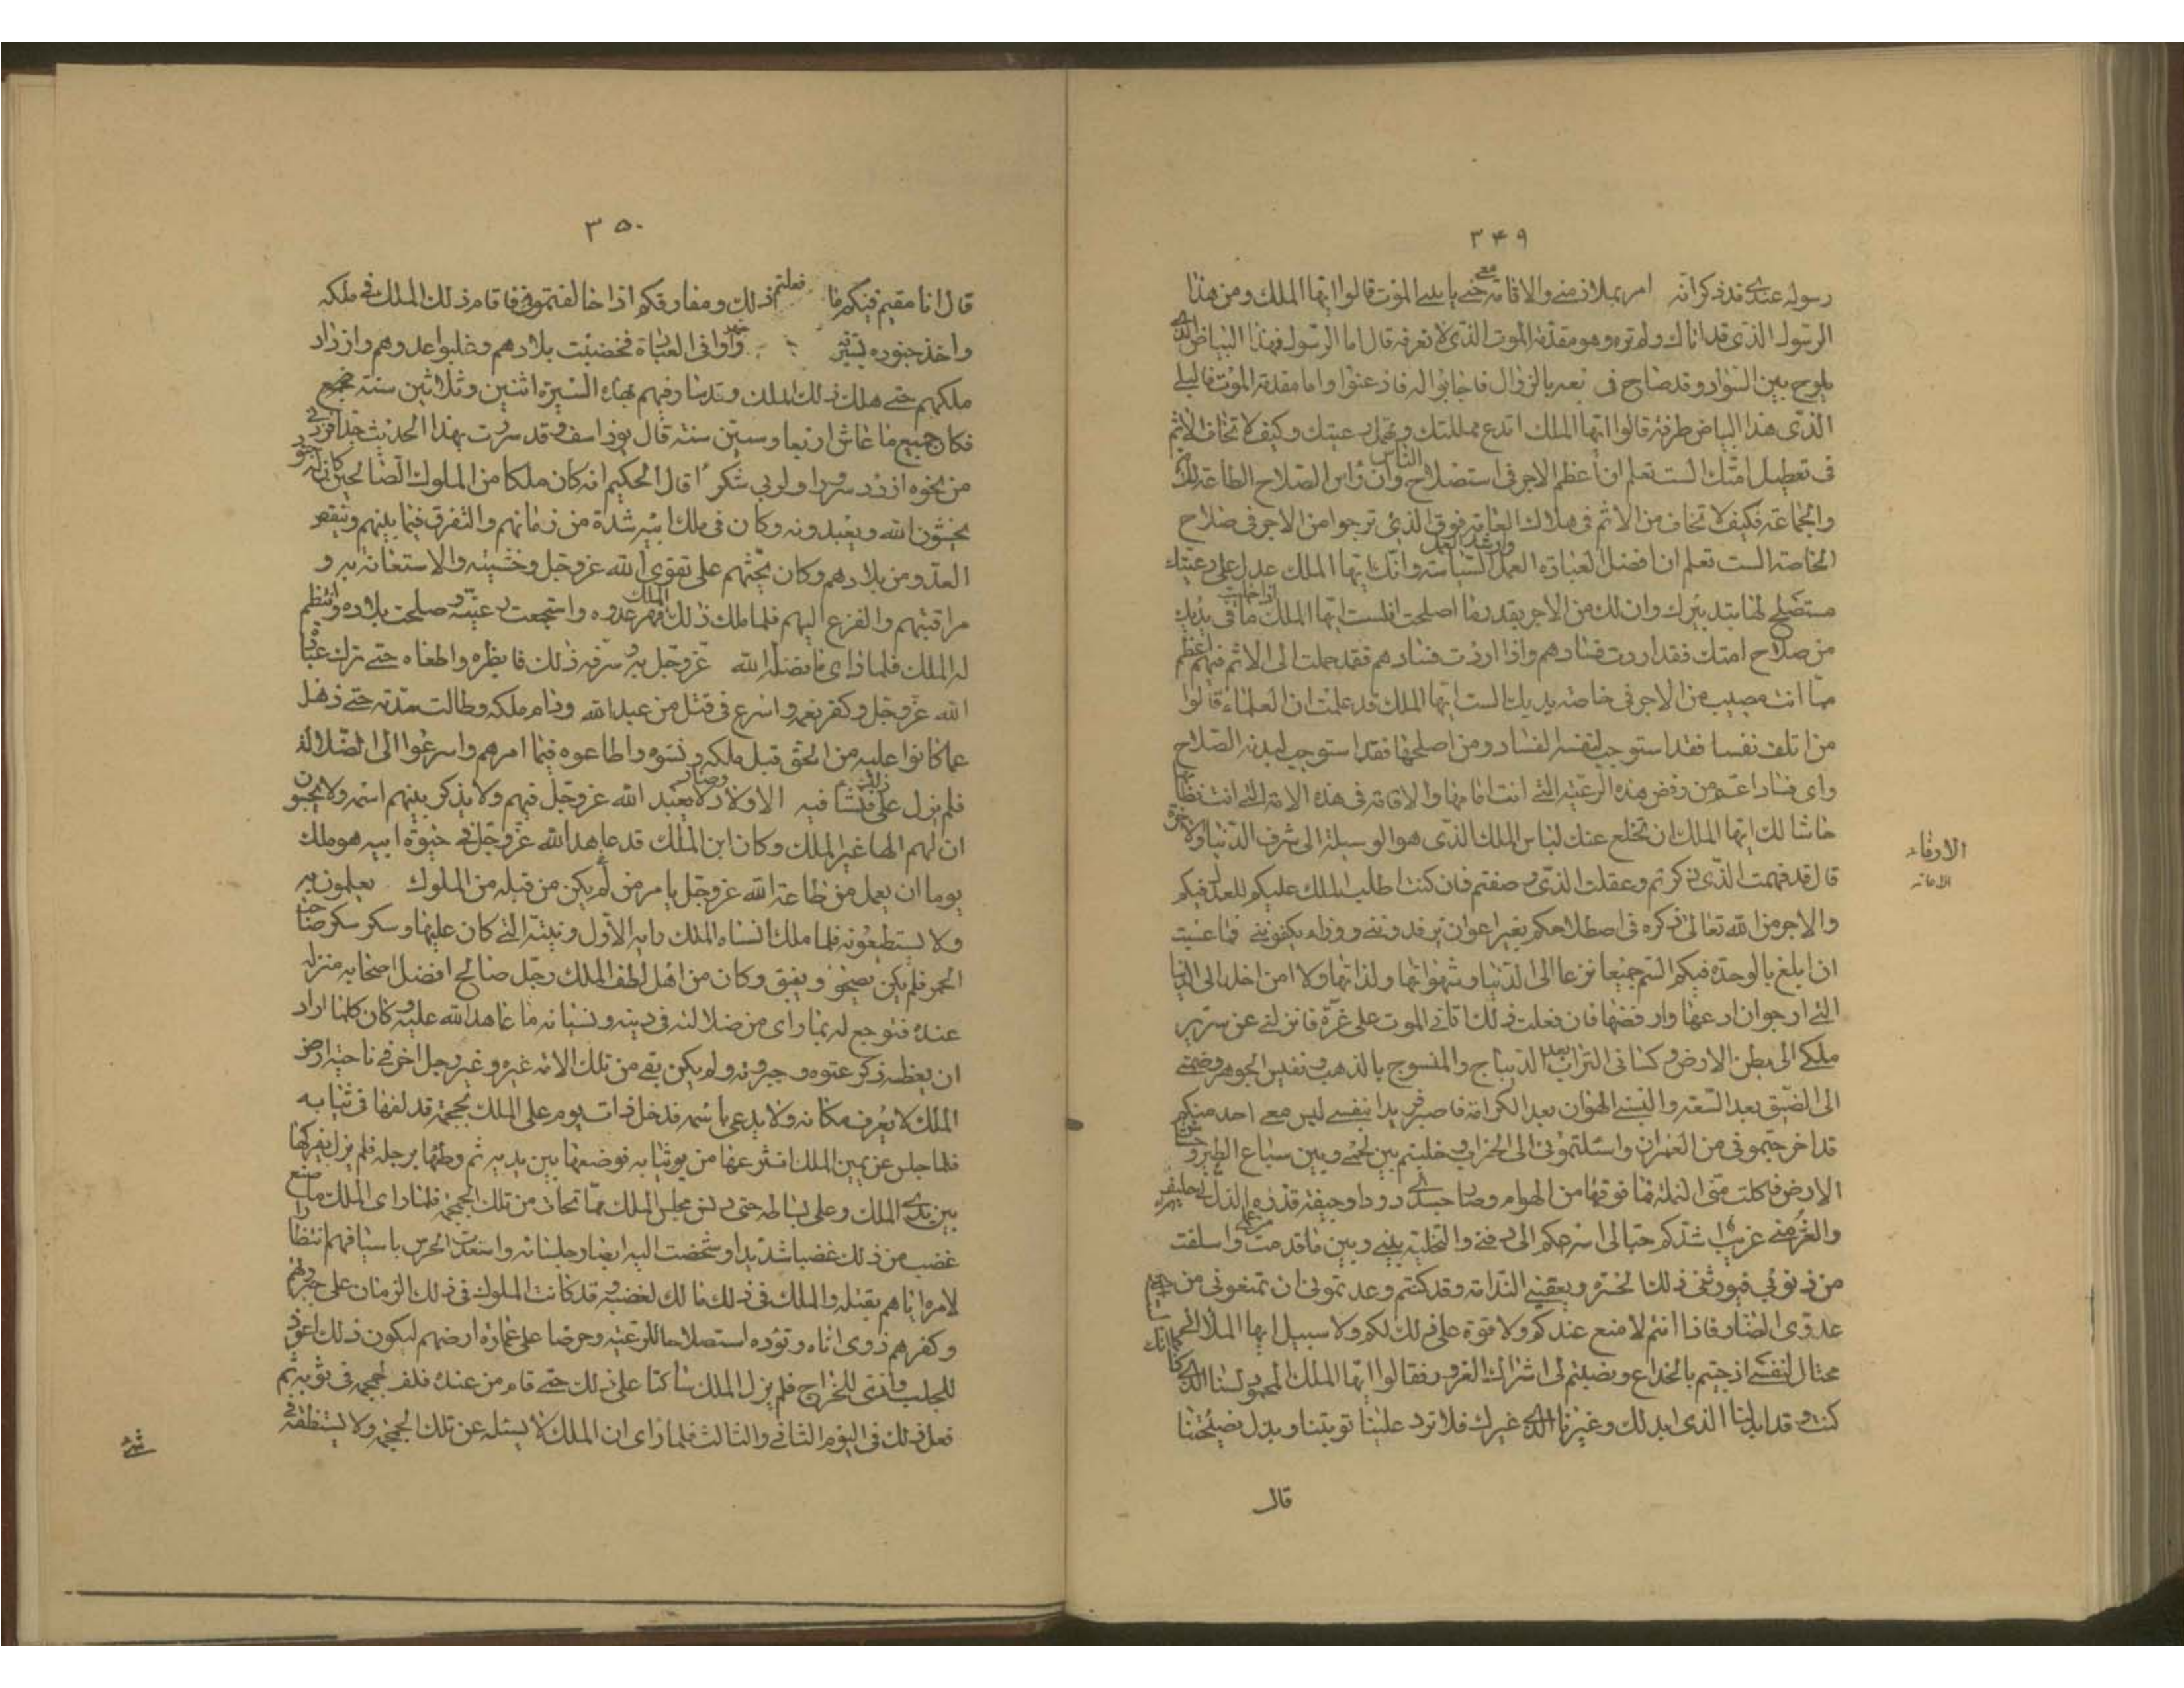 ٣٤٩
رسوله عندي قد ذكر انه امر بملازمتي والاقامة معي حتى ياتيني الموت قالوا ايها الملك ومن هذا
الرسول الذي قد اتاك ولم تره وهو مقدمة الموت الذي لا نعرفه قال اما الرسول فهذا البياض الذي
يلوح بين السواد وقد صاح في بالزوال فاجابوا له فاذعنوا واما مقدمة الموت فالبلى
الذي هذا البياض طرفه قالوا ايها الملك اتدع مملكتك وتهمل رعيتك وكيف لا تخاف الاثم
في تعطيل امتك الست تعلم ان اعظم الاجر في استصلاح الناس وان راس الصلاح الطاعة
والجماعة فكيف لا تخاف من الاثم في هلاك العامة فوق الذي ترجوا من الاجر في صلاح
الخاصة الست تعلم ان افضل العبادة العمل واشد العمل السياسة وانك ايها الملك عدل على رعيتك
مستصلح لها بتدبيرك وان لك من الاجر بقدر ما اصلحت افلست ايها الملك اذا خليت ما في يديك
من صلاح امتك فقد اردت فسادهم واذا اردت فسادهم فقد حملت الى الاثم فيهم اعظم
مما انت مصيب من الاجر في خاصة يديك الست ايها الملك قد علمت ان العلماء قالوا
من اتلف نفسا فقد استوجب لنفسه الفساد ومن اصلحها فقد استوجب لبدنه الصلاح
واي فساد اعظم من رفض هذه الرعية التي انت امامها والاقامة في هذه الامة التي انت نظامها
حاشا لك ايها الملك ان تخلع عنك لباس الملك الذي هو الوسيلة الى شرف الدنيا والاخرة
قال قد فهمت الذي ذكرتم وعقلت الذي وصفتم فان كنت اطلب الملك عليكم للعدل فيكم
والاجر من الله تعالى ذكره في اصطلاحكم بغير اعوان يرفدونني ووزراء يكفونني فما عسيت
ان ابلغ بالوحدة فيكم الستم جميعا نزعا الى الدنيا وشهواتها ولذاتها ولا امن اخلد الى الدنيا
التي ارجو ان ادعها وارفضها فان فعلت ذلك اتاني الموت على غرة فانزلني عن سرير
ملكي الى بطن الارض وكساني التراب بعد الديباج والمنسوج بالذهب ونفيس الجوهر وضمني
الى الضيق بعد السعة والبسني الهوان بعد الكرامة فاصير فريدا بنفسي ليس معي احد منكم
قد اخرجتموني من العمران واسلتموني الى الخراب وخليتم بين لحمي وبين سباع الطير وحشا
الارض فاكلت مني النملة فما فوقها من الهوام وصار جسدي دودا وجيفة قذرة الذل لي حليف
والعز مني غريب اشدكم حبا لي اسرعكم الى دفني والتخلية بيني وبين ما قدمت من عملي واسلفت
من ذنوبي فيورثني ذلك الحسرة ويعقبني الندامة وقد كنتم وعدتموني ان تمنعوني من
عدوي الضار فاذا انتم لا منع عندكم ولا قوة على ذلك لكم ولا سبيل ايها الملأ اني
محتال لنفسي اذ جئتم بالخداع ونصبتم لي اشراك الغرور فقالوا ايها الملك المحمود لسنا الذي كنا كما انك
كنت وقد ابدلنا الذي ابدلك وغيرنا الذي غيرك فلا ترد علينا توبتنا وبذل نصيحتنا
قال
الارفاء
الامانة
٣٥٠
قال انا مقيم فيكم ما فعلتم ذلك ومفارقكم اذا خالفتموني فاقام ذلك الملك في ملكه
واخذ جنوده بسيرته واجتهدوا في العبادة فخصبت بلادهم وغلبوا عدوهم وازداد
ملكهم حتى هلك ذلك الملك وقد سار فيهم بهذه السيرة اثنين وثلاثين سنة
فكان جميع ما عاش اربعا وستين سنة قال يوذاسف قد سررت بهذا الحديث جدا فزدني
من نحوه ازدد سرورا ولربي شكرا قال الحكيم انه كان ملكا من الملوك الصالحين كان له جنود
يخشون الله ويعبدونه وكان في ملك ابيه شدة من زمانهم والتفرق فيما بينهم وتنقص
العدو من بلادهم وكان يحثهم على تقوى الله عز وجل وخشيته والاستعانة به و
مراقبتهم والفزع اليهم فلما ملك ذلك الملك قهر عدوه واستجمعت رعيته وصلحت بلاده وانتظم
له الملك فلما راى ما فضله الله عز وجل به وشرفه ذلك فابطره واطغاه حتى ترك عبادة
الله عز وجل وكفر نعمه واسرع في قتل من عبد الله ودام ملكه وطالت مدته حتى ذهل
عما كانوا عليه من الحق قبل ملكه ونسوه واطاعوه فيما امرهم واسرعوا الى الضلالة
فلم يزل على ذلك فنشأ فيه الاولاد وصار لا يعبد الله عز وجل فيهم ولا يذكر بينهم اسمه ولا يحسبون
ان لهم الها غير الملك وكان ابن الملك قد عاهد الله عز وجل في حيوة ابيه هو ملك
يوما ان يعمل من طاعة الله عز وجل بامر من لم يكن من قبله من الملوك يعملون به
ولا يستطيعونه فلما ملك انساه الملك رايه الاول ونيته التي كان عليها وسكر سكر صاحب
الخمر فلم يكن يصحو ويفيق وكان من اهل لطف الملك رجل صالح افضل اصحابه منزلة
عنده فتوجع له بما راى من ضلالته في دينه ونسيانه ما عاهد الله عليه وكان كلما اراد
ان يعظه ذكر عتوه وجبروته ولم يكن بقي من تلك الامة غيره وغير رجل اخر في ناحية ارض
الملك لا يعرف مكانه ولا يدعى باسمه فدخل ذات يوم على الملك بجمجمة قد لفها في ثيابه
فلما جلس عن يمين الملك انتزعها من ثيابه فوضعها بين يديه ثم وطئها برجله فلم يزل يفركها
بين يدي الملك وعلى بساطه حتى دنس مجلس الملك مما تحات من تلك الجمجمة فلما راى الملك ما صنع
غضب من ذلك غضبا شديدا وشخصت اليه ابصار جلسائه واستعدت الحرس باسيافهم انتظارا
لامره اياهم بقتله والملك في ذلك مالك لغضبه وقد كانت الملوك في ذلك الزمان على جبروتهم
وكفرهم ذوي اناة وتؤدة استصلاحا للرعية وحرصا على عمارة ارضهم ليكون ذلك اعون
للجلب وادى للخراج فلم يزل الملك ساكتا على ذلك حتى قام من عنده فلف الجمجمة في ثوبه ثم
فعل ذلك في اليوم الثاني والثالث فلما راى ان الملك لا يسئله عن تلك الجمجمة ولا يستنطقه